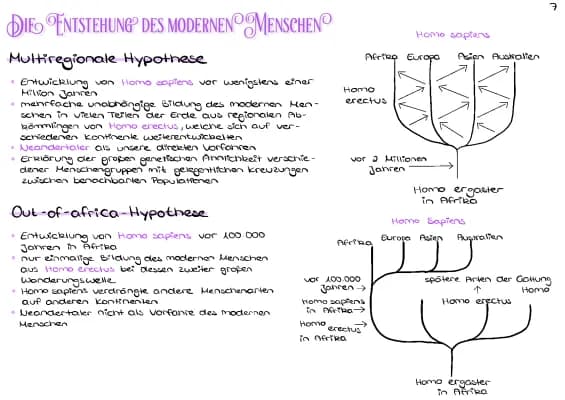 7
DIE ENTSTEHUNG DES MODERNEN MENSCHEN
Multiregionale Hypothese
Entwicklung von Homo sapiens vor wenigstens einer
Million Jahren
mehrfache unabhängige Bildung des modernen Men-
schen in vielen Teilen der Erde aus regionalen Ab-
kömmlingen von Homo erectus, welche sich auf ver-
schiedenen Kontinente weiterentwickelten
Neandertaler als unsere direkten Vorfahren
Erklärung der großen genetischen Ähnlichkeit verschie-
dener Menschengruppen mit gelegentlichen Kreuzungen
zwischen benachbarten Populationen
Homo sapiens
Afrika Europa Asien Australien
Homo
erectus
vor 2 Millionen
Jahren
Homo ergaster
in Afrika
Out-of-africa-Hypothese
Entwicklung von Homo sapiens vor 100.000
Jahren in Afrika
nur einmalige Bildung des modernen Menschen
aus Homo erectus bei dessen zweiter großen
Wanderungswelle
Homo sapiens verdrängte andere Menschenarten
auf anderen Kontinenten
Neandertaler nicht als Vorfahre des modernen
Menschen
Homo Sapiens
Afrika Europa Asien Australien
vor 100.000
Jahren →
Homo sapiens
in Afrika →
Homo erectus →
in Afrika
spätere Arten der Gattung
↑ Homo
Homo erectus
Homo ergaster
in Afrika